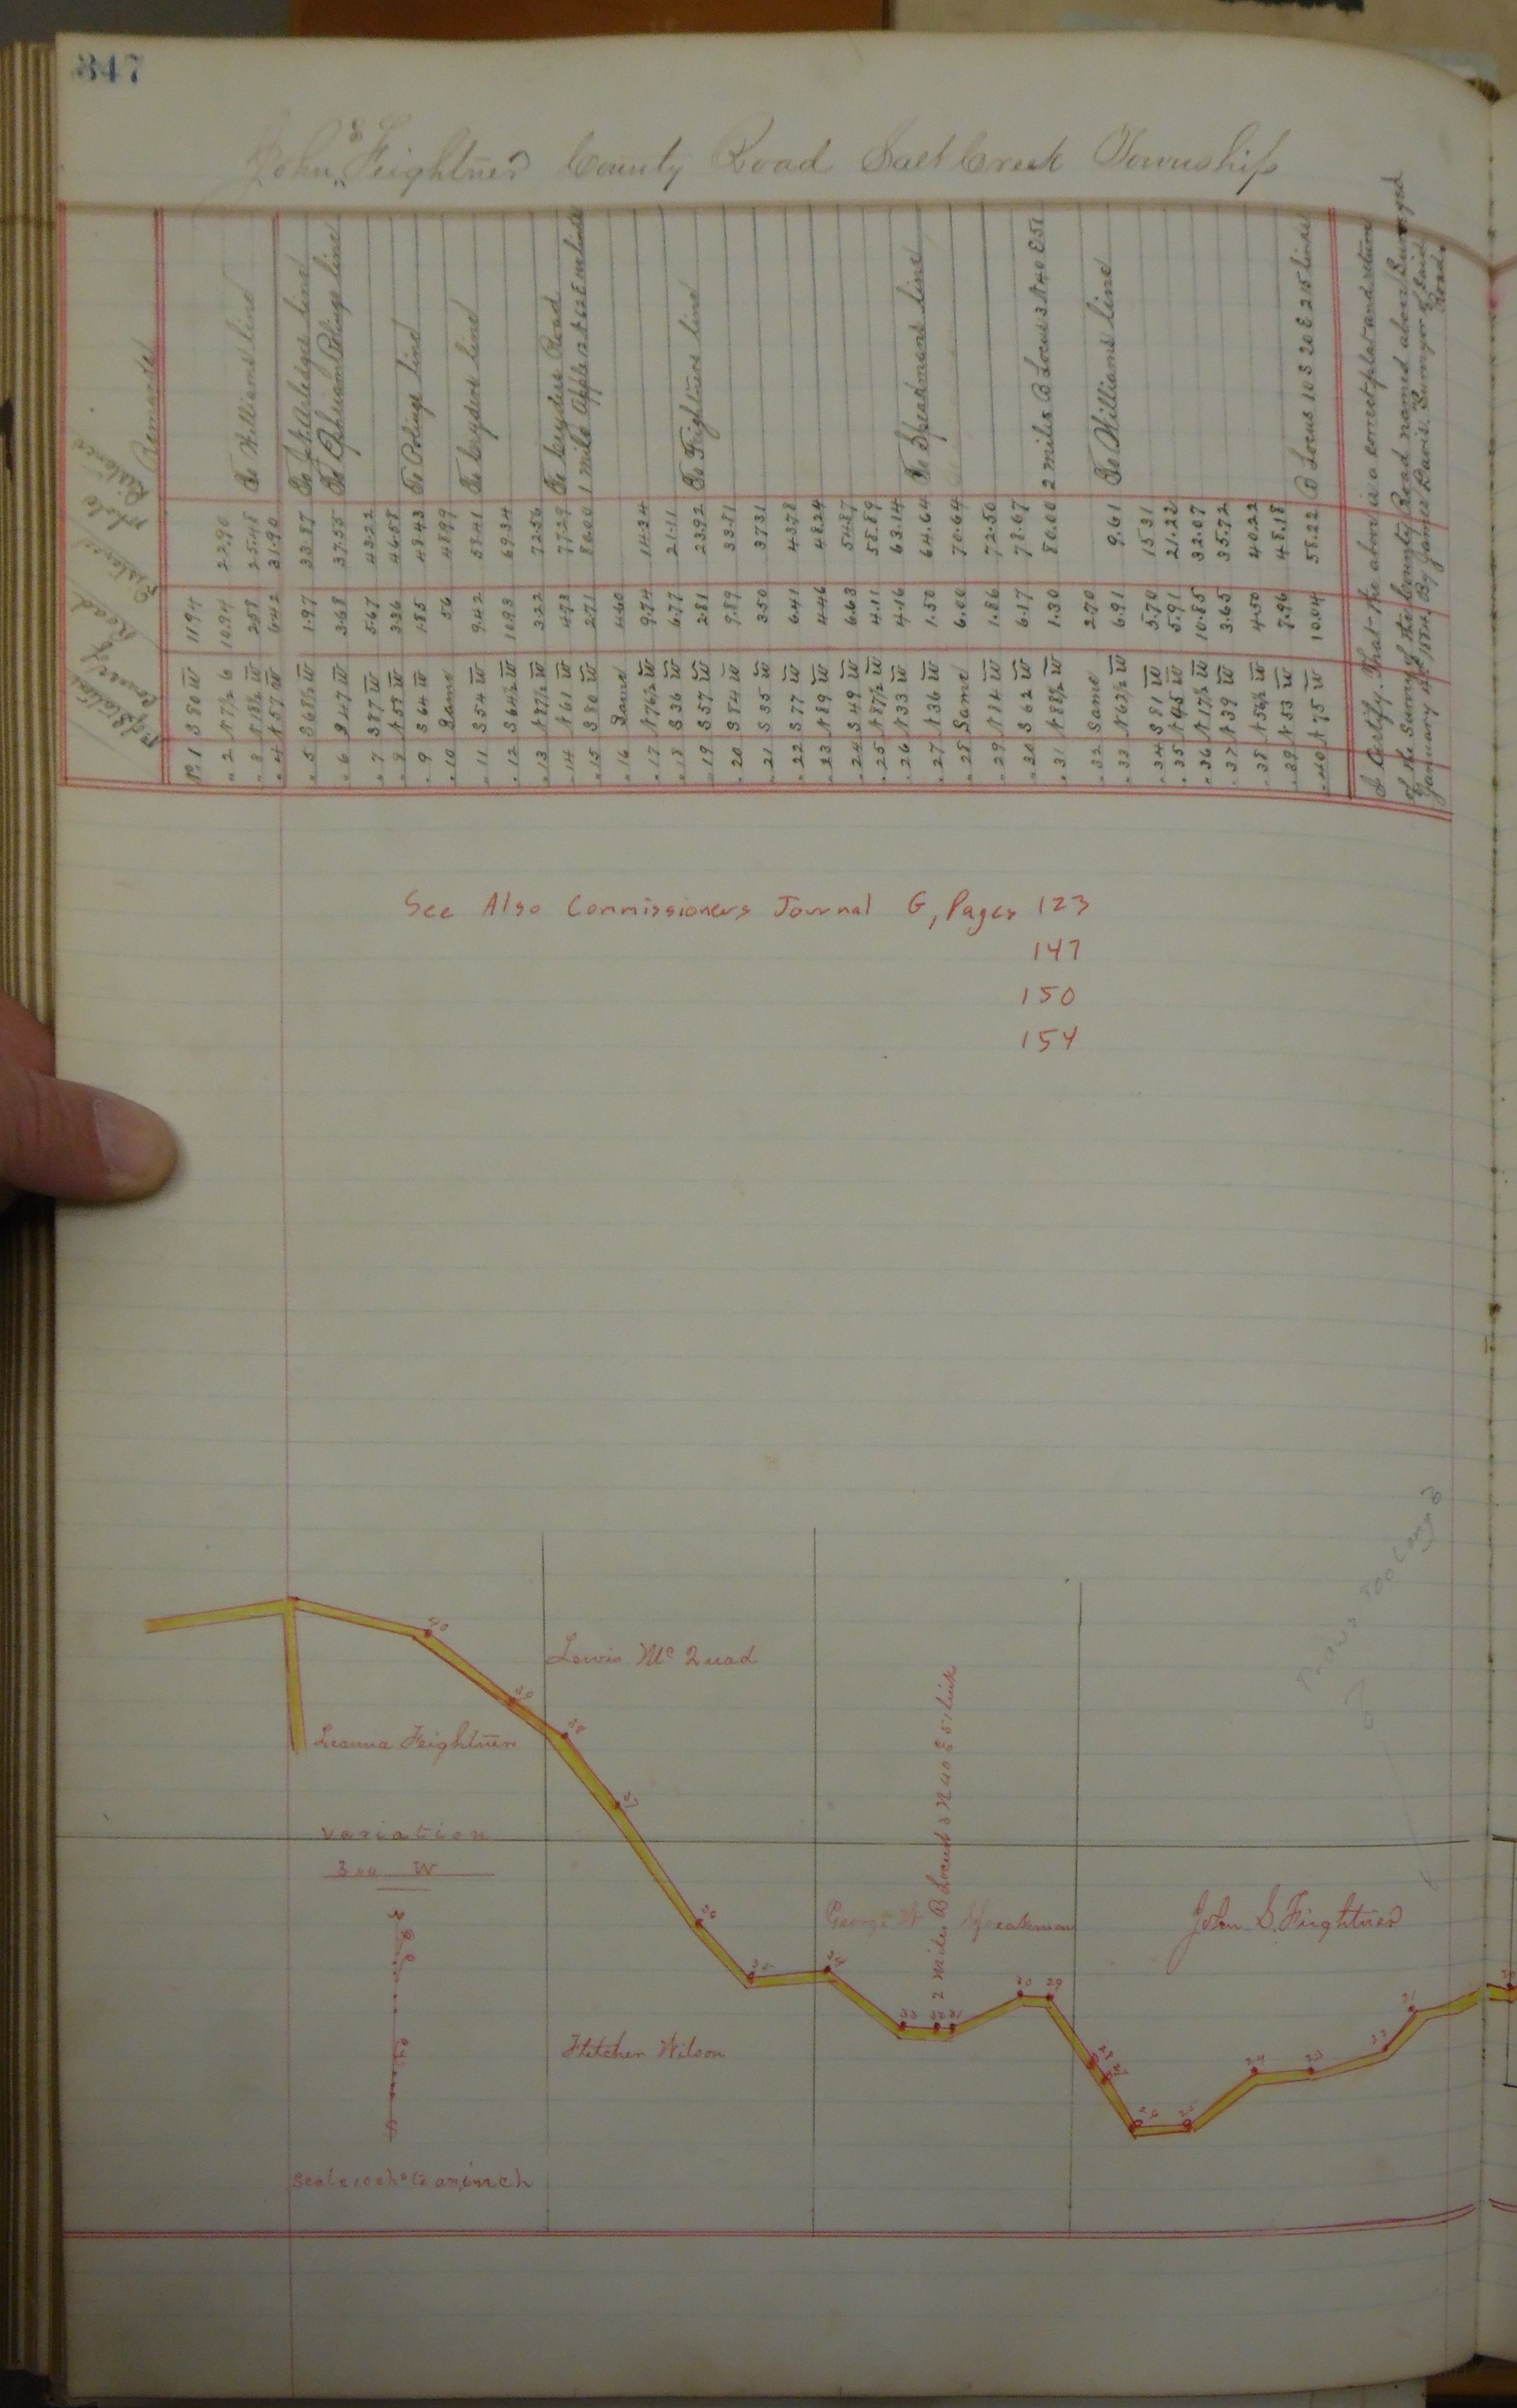 347
John S. Feightner County Road Salt Creek Township
No of Station Course of Road Distance whole Distance Remarks
No 1 S 80 W 11.94
" 2 N 7 1/2 10.94 22.90
" 3 N 18 1/2 W 2.58 25.48 To Williams line
" 4 N 57 W 6.42 31.90
" 5 S 68 1/2 W 1.97 33.87 To line
" 6 S 47 W 3.68 37.55 To Ephraim Polings line
" 7 S 87 W 5.67 43.22
" 8 N 57 W 3.36 46.58
" 9 S 64 W 1.85 48.43 To Polings line
" 10 Same 56 48.99
" 11 S 54 W 9.42 58.41 To Cryders line
" 12 S 64 1/2 W 10.93 69.34
" 13 N 87 1/2 W 3.22 72.56
" 14 N 61 W 4.73 77.29 To Cryders Road
" 15 S 80 W 2.71 80.00 1 mile Apple 12 N 62 E links
" 16 Same 4.60
" 17 N 76 1/2 W 9.74 14.34
" 18 S 36 W 6.77 21.11
" 19 S 57 W 2.81 23.92 To Feightners line
" 20 S 84 W 9.89 33.81
" 21 S 35 W 3.50 37.31
" 22 S 77 W 6.41 43.78
" 23 N 89 W 4.46 48.24
" 24 S 49 W 6.63 54.87
" 25 N 87 1/2 W 4.11 58.89
" 26 N 33 W 4.16 63.14
" 27 N 36 W 1.50 64.64 To Speakmans line
" 28 Same 6.00 70.64
" 29 N 84 W 1.86 72.50
" 30 S 62 W 6.17 78.67
" 31 N 88 1/2 W 1.30 80.00 2 miles B Locus 3 N 40 E 51
" 32 Same 2.70
" 33 N 63 1/2 W 6.91 9.61 To Williams line
" 34 S 81 W 5.70 15.31
" 35 N 45 W 5.91 21.22
" 36 N 17 1/2 W 10.85 32.07
" 37 N 39 W 3.65 35.72
" 38 N 56 1/2 W 4.50 40.22
" 39 N 53 W 7.96 48.18
" 40 N 75 W 10.04 58.22 B Locus 10 S 20 E 215 links
I Certify That the above is a correct plat and return
of the Survey of the County Road named above Surveyed
January By James Davis Surveyor of Said Road.
See Also Commissioners Journal G, Pages 123
147
150
154
Drawn Too Long
Lewis Mc Quad
Leanna Feightner
variation
W
2 miles B Locust 3 N 40 E 51 links
George W Speakman
John S. Feightner
Fletcher Wilson
Scale 10 chs to an inch
40
39
38
37
36
35
34
33
32
31
30
29
28
27
26
25
24
23
22
21